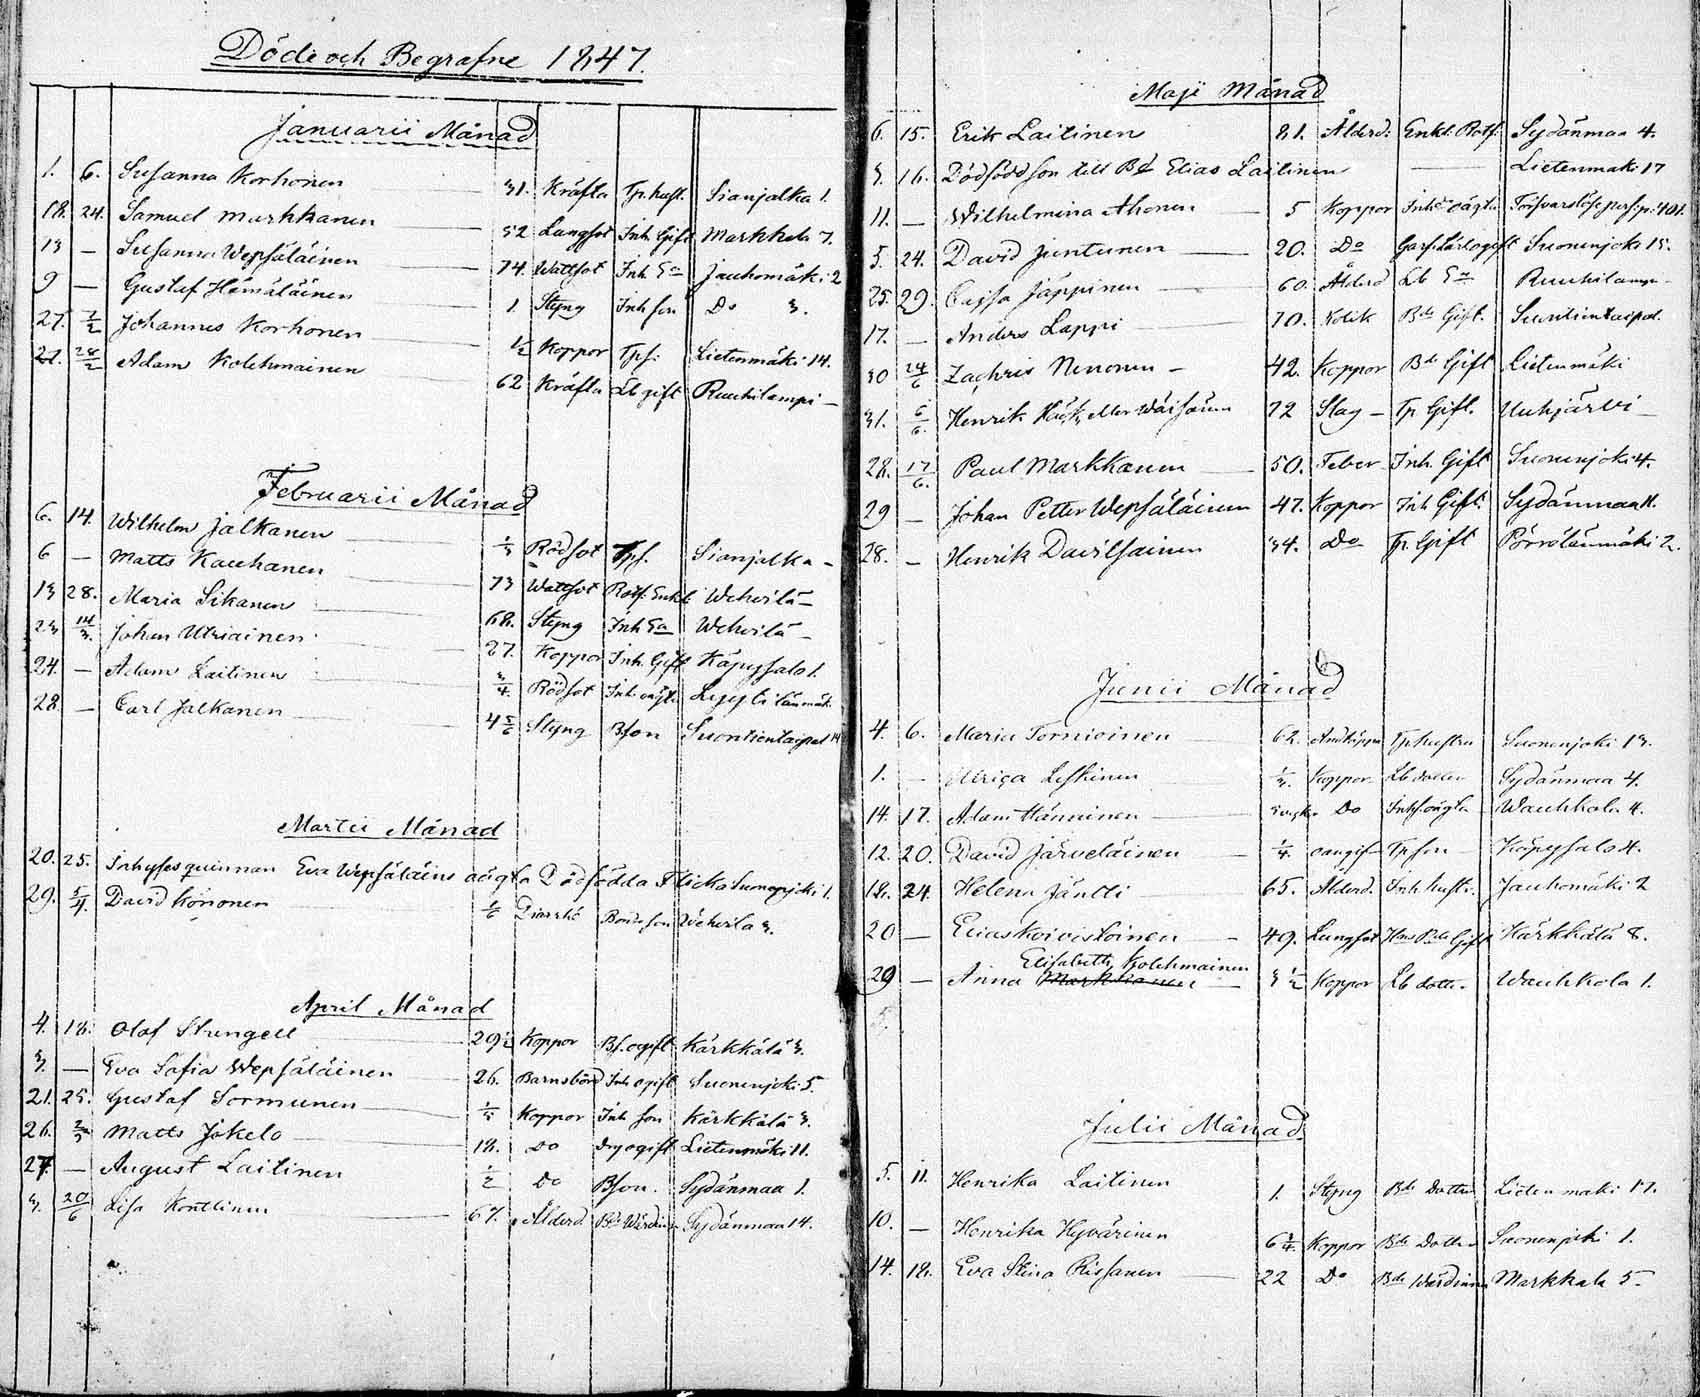 Döde och Begrafne 1847.
Januarii Månad
1. 6. Susanna Korhonen 31. Kräfta Tp. hust. Sianjalka 1.
18. 24. Samuel Markkanen 52 Lungsot Inh. Gift Markkala 7.
13 — Susanna Wepsäläinen 74. Wattsot Inh Ea Jauhomäki 2
9 — Gustaf Hämäläinen 1 Styng Inh son Do 3.
27. 7/2 Johannes Korhonen 1/2 Koppor Tps. Lietenmäki 14.
21. 28/2 Adam Kolehmainen 62 Kräfta Lb gift Ruuhilampi —
Februarii Månad
6. 14. Wilhelm Jalkanen 1/3 Rödsot Tps. Sianjalka —
6 — Matts Kauhanen 73 Wattsot Rotf. Enkl. Wehvilä —
13 28. Maria Sikanen 68. Styng Inh Ea Wehvilä —
23 14/3. Johan Utriainen 27. Koppor Inh. Gift Käpysalo 1.
24. — Adam Laitinen 3/4. Rödsot Inh. oägta
28. — Carl Jalkanen 4 5/6 Styng Bson Suontientaipal 14
Martii Månad
20. 25. Inhyses quinnan Eva Wepsäläins oägta Dödfödda Flicka Suonenjoki 1.
29. 5/4. David Könönen 1/6 Bondeson Wehvilä 3.
April Månad
4. 18. Olof Strengell 29 1/2 Koppor Bs. ogift Kärkkälä 3.
3. — Eva Sofia Wepsäläinen 26. Barnsbörd Inh ogift Suonenjoki 5.
21. 25. Gustaf Sormunen Koppor Inh son Kärkkälä 3.
26. 2/5 Matts Jokelo 18. Do Drg ogift Lietenmäki 11.
27. — August Laitinen 1/2 Do Bson. Sydänmaa 1.
3. 20/6 Lisa Konttinen 67. Ålderd. Bde Wärdinn Sydänmaa 14.
Maji Månad
6. 15. Erik Laitinen 81. Ålderd. Enkl. Rotf. Sydänmaa 4.
3. 16. Dödfödd son till Bd Elias Laitinen — Lietenmäki 17
11. — Wilhelmina Ahonen 5 Koppor Inh d oägta Försvarslöse pers: p: 101.
5. 24. David Juntunen 20. Do ogift Suonenjoki 15.
25. 29. Cajsa Jäppinen 60. Ålderd Lb Ea Ruuhilampi
17. — Anders Lappi 70. Kolik Bde Gift. Suontientaipal.
30 24/6 Zachris Nenonen — 42. Koppor Bde Gift Lietenmäki
31. 6/6. Henrik Häck eller Wäisänen 72 Slag — Tp Gift. Uuhjärvi —
28. 17/6. Paul Markkanen 50. Feber Inh. Gift Suonenjoki 4.
29 — Johan Petter Wepsäläinen 47. Koppor Inh Gift. Sydänmaa 11.
28. — Henrik Davilsainen 34. Do Tp. Gift Pörrölänmäki 2.
Junii Månad
4. 6. Maria Tornioinen 62. Andtäppa Tp hustru Suonenjoki 13.
1. — Ulrica Leskinen 1/3. Koppor Lb dotter Sydänmaa 4.
14. 17. Adam Hänninen Do Inh s oägta Wauhkola 4.
12. 20. David Järveläinen 1/4. oangif Tp son Käpysalo 4.
18. 24. Helena Jäntti 65. Ålderd. Inh. hustr. Jauhomäki 2
20 — Elias Koivistoinen 49. Lungsot Hms Bde Gift Kärkkälä 8.
Elisabeth Kolehmainen
29 — Anna Markkanen 3 1/2 Koppor Lb dotter Wauhkola 1.
Julii Månad.
5. 11. Henrika Laitinen 1. Styng Bde Dotter Lietenmäki 17.
10. — Henrika Hyvärinen 6 3/4. Koppor Bde Dotter Suonenjoki 1.
14. 18. Eva Stina Rissanen 22 Do Bde Wärdinna Markkala 5.